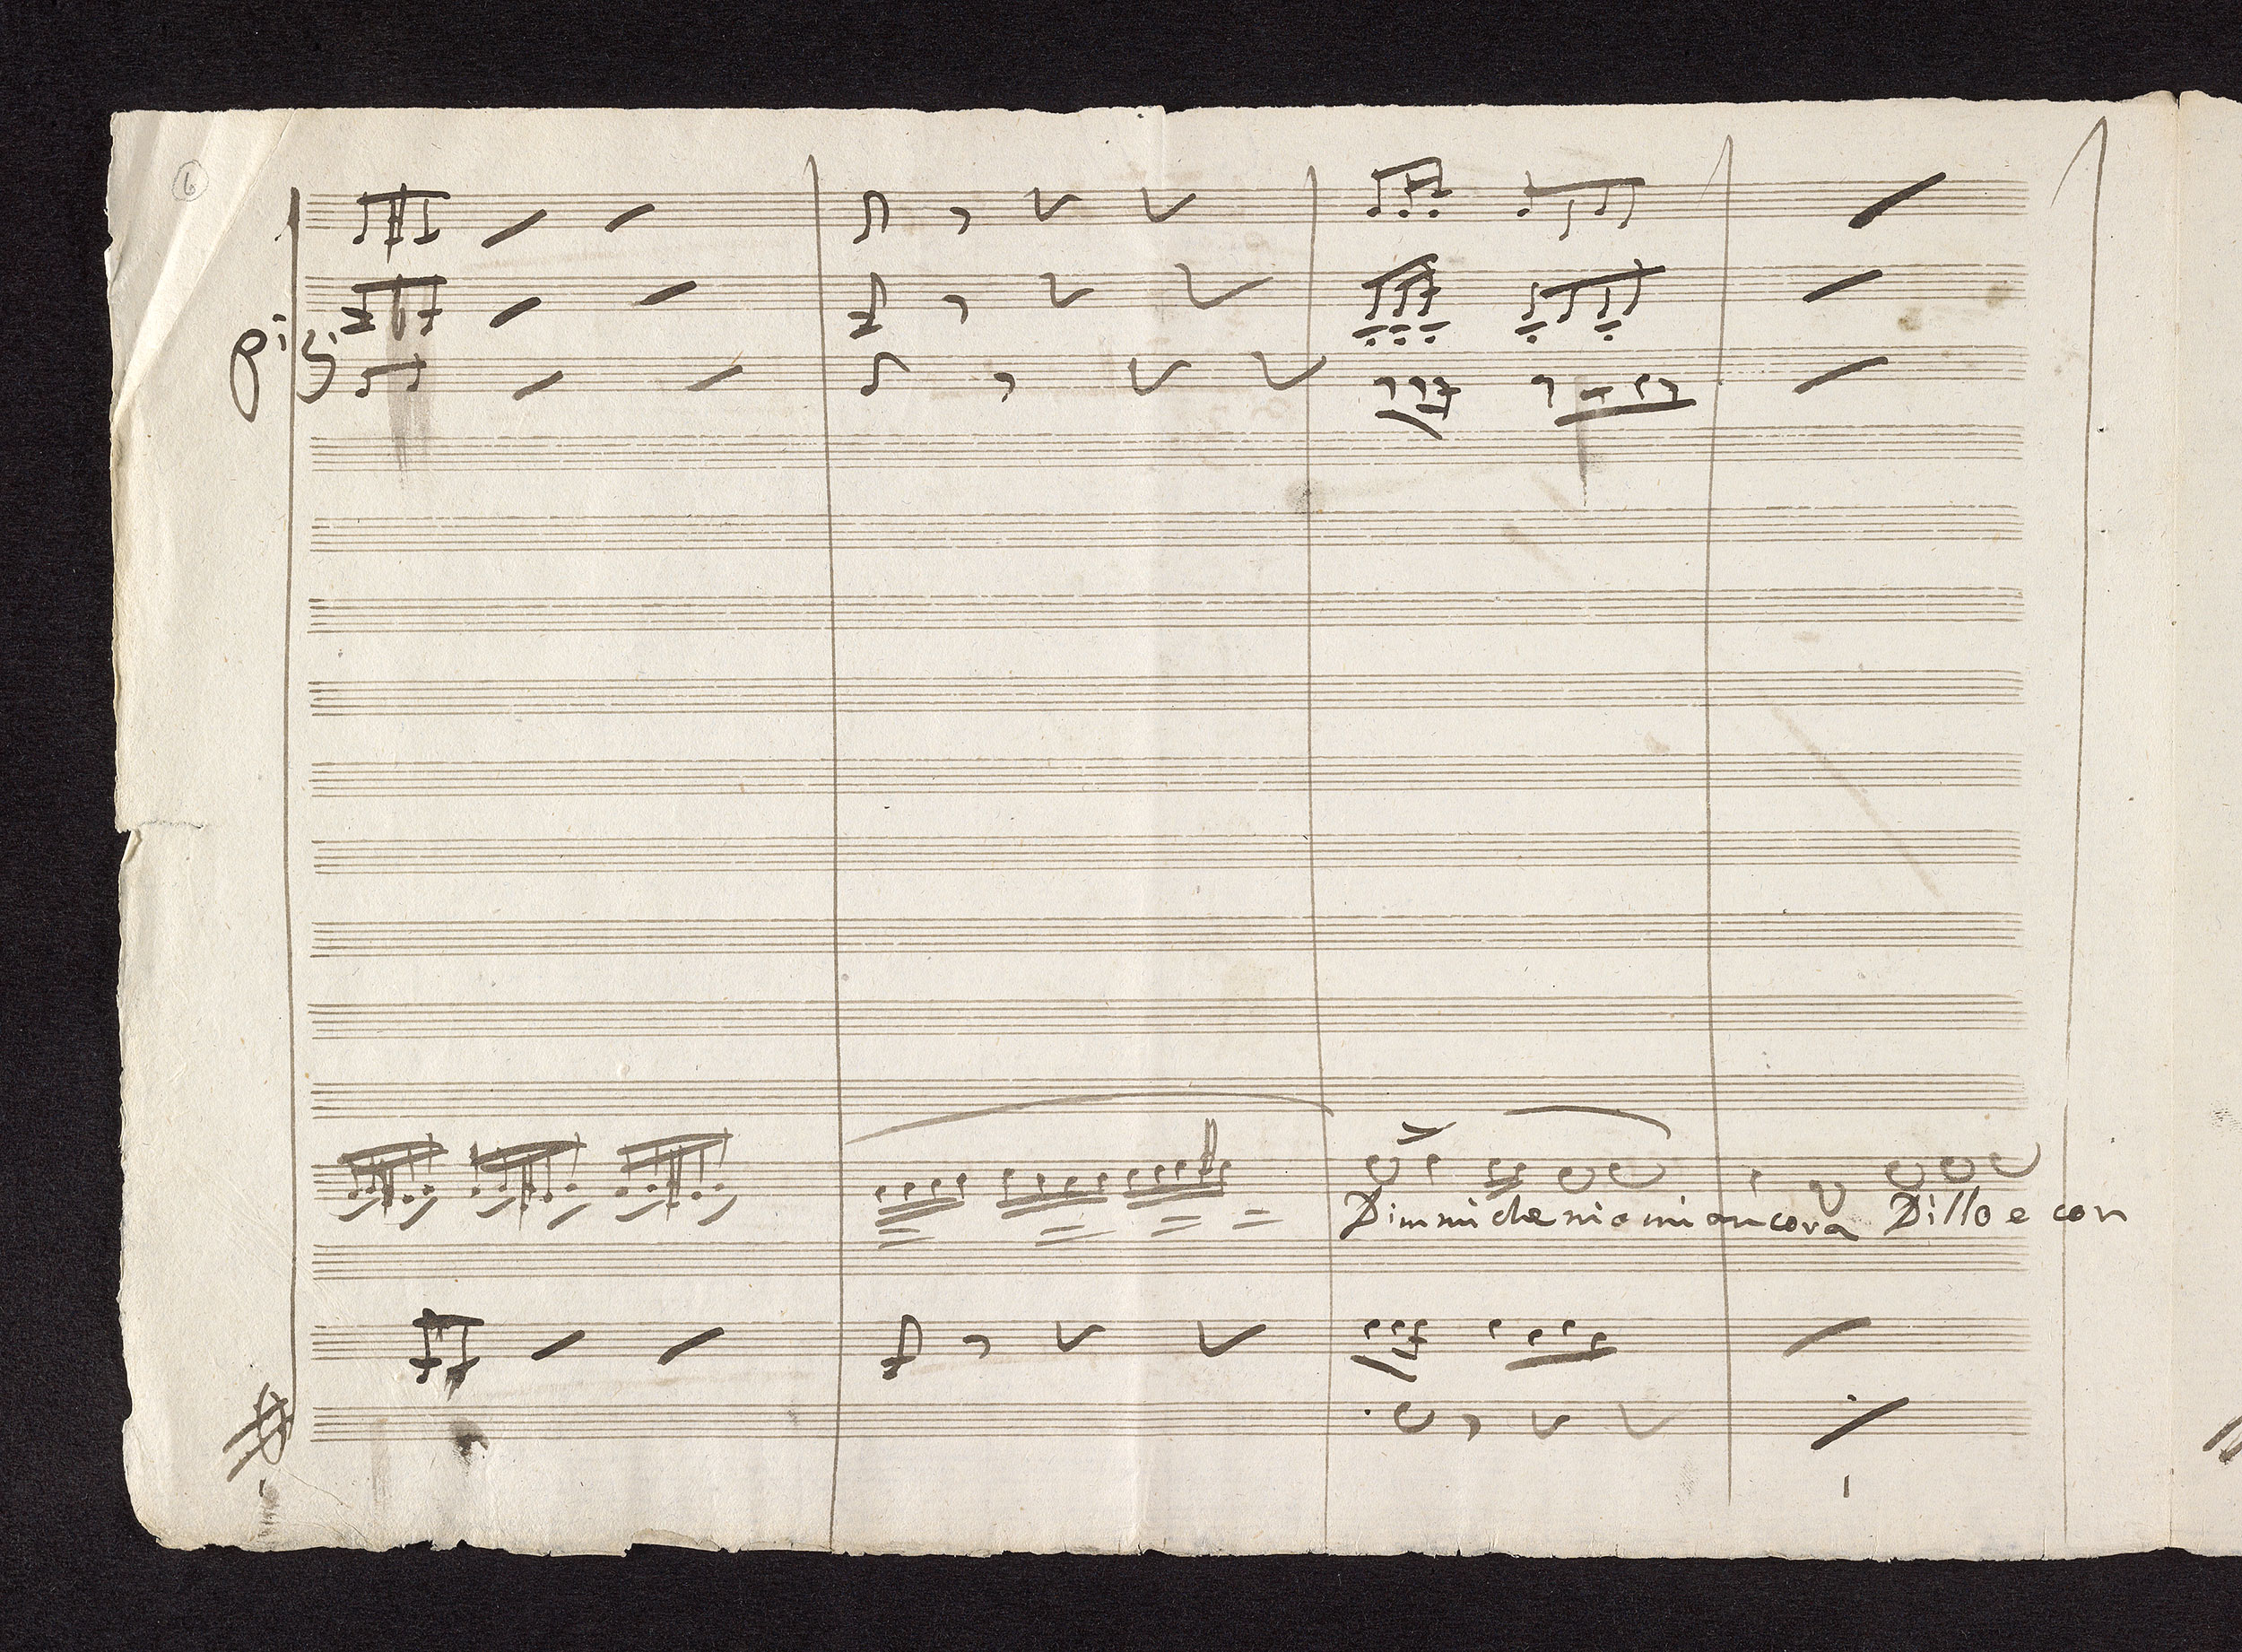 6
Dimmi che m'ami ancora Dillo e con